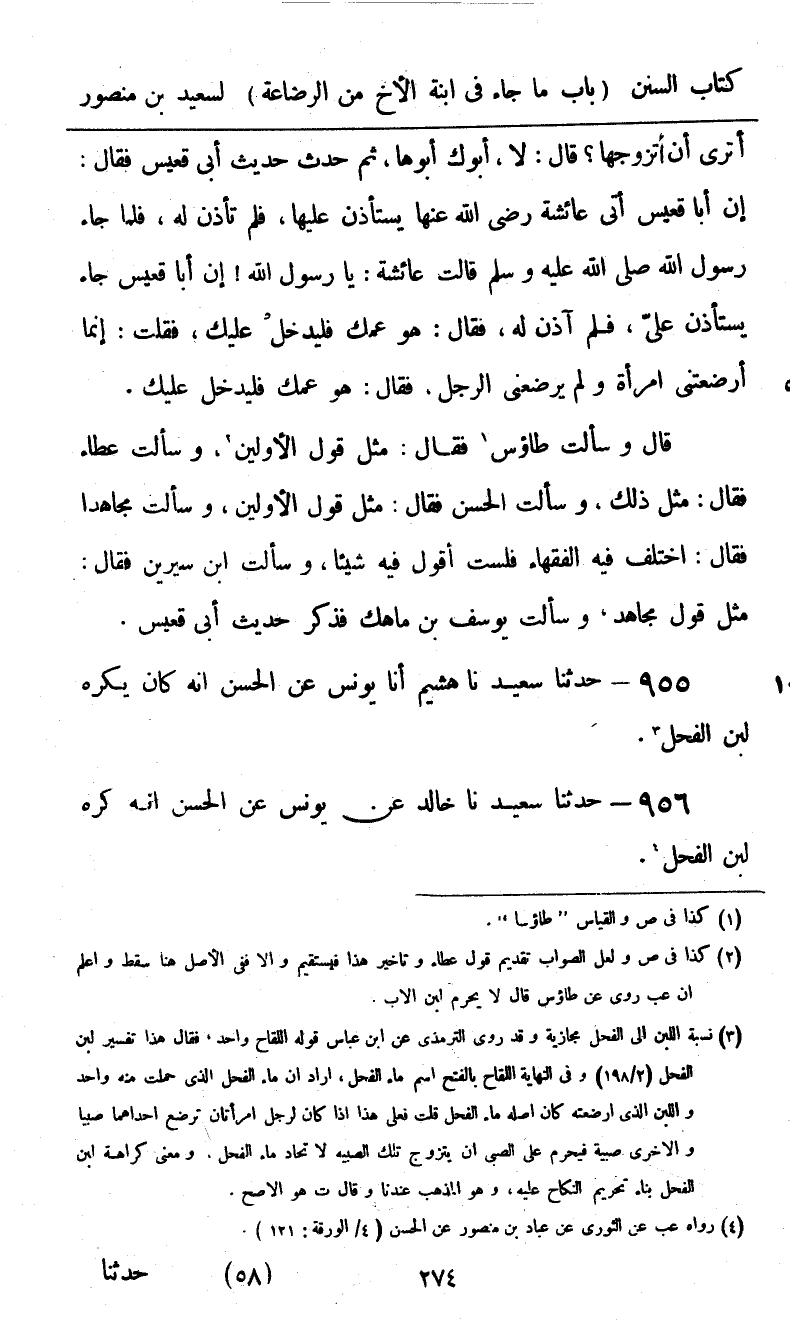 كتاب السنن (باب ما جاء فى ابنة الأخ من الرضاعة) لسعيد بن منصور
أترى أن أتزوجها؟ قال: لا، أبوك أبوها، ثم حدث حديث أبى قعيس فقال:
إن أبا قعيس أتى عائشة رضى الله عنها يستأذن عليها، فلم تأذن له، فلما جاء
رسول الله صلى الله عليه و سلم قالت عائشة: يا رسول الله! إن أبا قعيس جاء
يستأذن علىّ، فلم آذن له، فقال: هو عمك فليدخلْ عليك، فقلت: إنما
أرضعتنى امرأة و لم يرضعنى الرجل. فقال: هو عمك فليدخل عليك. ٥
قال و سألت طاؤس١ فقال: مثل قول الأولين٢، و سألت عطاء
فقال: مثل ذلك، و سألت الحسن فقال: مثل قول الأولين، و سألت مجاهدا
فقال: اختلف فيه الفقهاء فلست أقول فيه شيئا، و سألت ابن سيرين فقال:
مثل قول مجاهد، و سألت يوسف بن ماهك فذكر حديث أبى قعيس.
٩٥٥ – حدثنا سعيد نا هشيم أنا يونس عن الحسن انه كان يكره ١٠
لبن الفحل٣.
٩٥٦ – حدثنا سعيد نا خالد عن يونس عن الحسن انه كره
لبن الفحل٤.
(١) كذا فى ص و القياس "طاؤسا".
(٢) كذا فى ص و لعل الصواب تقديم قول عطاء و تاخير هذا فيستقيم و الا ففى الأصل هنا سقط و اعلم
ان عب روى عن طاؤس قال لا يحرم لبن الاب.
(٣) نسبة اللبن الى الفحل مجازية و قد روى الترمذى عن ابن عباس قوله اللقاح واحد، فقال هذا تفسير لبن
الفحل (١٩٨/٢) و فى النهاية اللقاح بالفتح اسم ماء الفحل، اراد ان ماء الفحل الذى حملت منه واحد
و اللبن الذى ارضعته كان اصله ماء الفحل قلت فعلى هذا اذا كان لرجل امرأتان ترضع احداهما صبيا
و الاخرى صبية فيحرم على الصبى ان يتزوج تلك الصبيه لاتحاد ماء الفحل. و معنى كراهة لبن
الفحل بناء تحريم النكاح عليه، و هو المذهب عندنا و قال ت هو الاصح.
(٤) رواه عب عن الثورى عن عباد بن منصور عن الحسن (٤/ الورقة: ١٢١).
٢٧٤ (٥٨) حدثنا